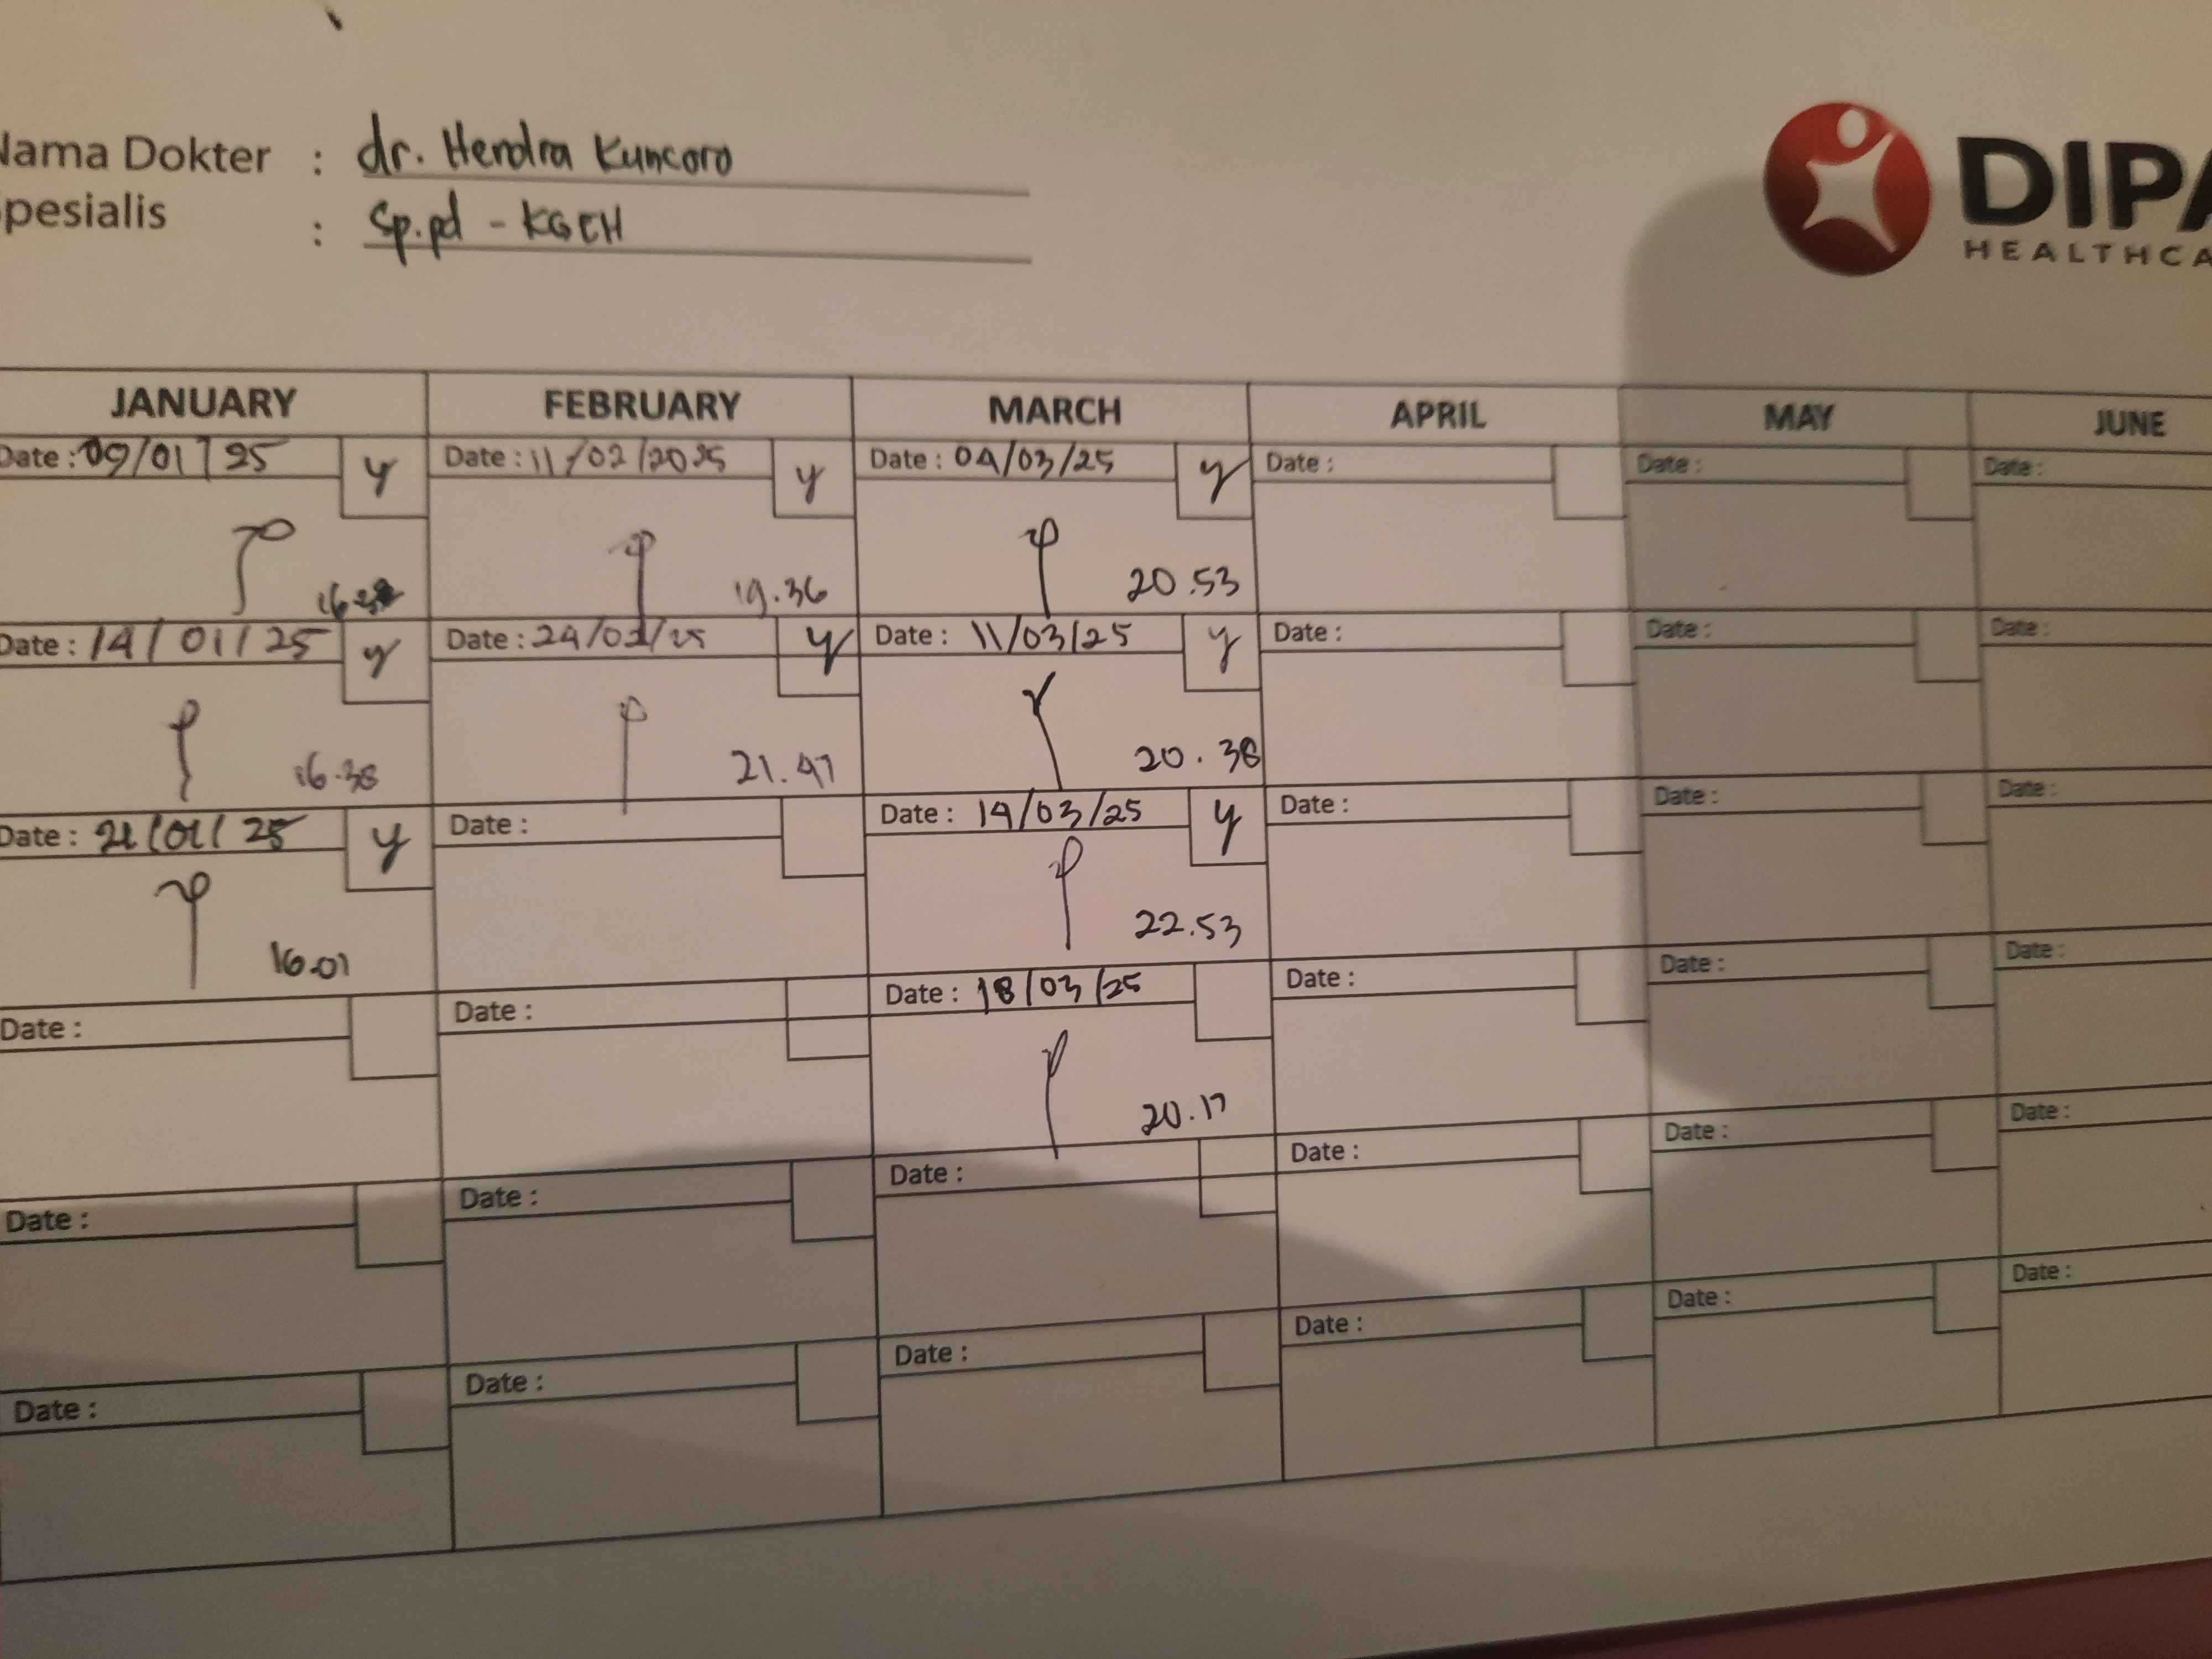 Nama Dokter : dr. Hendra Kuncoro
Spesialis : Sp.pd - KGEH
DIPA
HEALTHCA
JANUARY FEBRUARY MARCH APRIL MAY JUNE
Date : 09/01/25 y Date : 11/02/2025 y Date : 04/03/25 y Date : Date : Date :
19.36 20.53
Date : 14/01/25 y Date : 24/02/25 y Date : 11/03/25 y Date : Date : Date :
16.38 21.47 20.38
Date : 21/01/25 y Date : Date : 14/03/25 y Date : Date : Date :
16.01 22.53
Date : Date : Date : 18/03/25 Date : Date : Date :
20.17
Date : Date : Date : Date : Date : Date :
Date : Date : Date : Date : Date : Date :